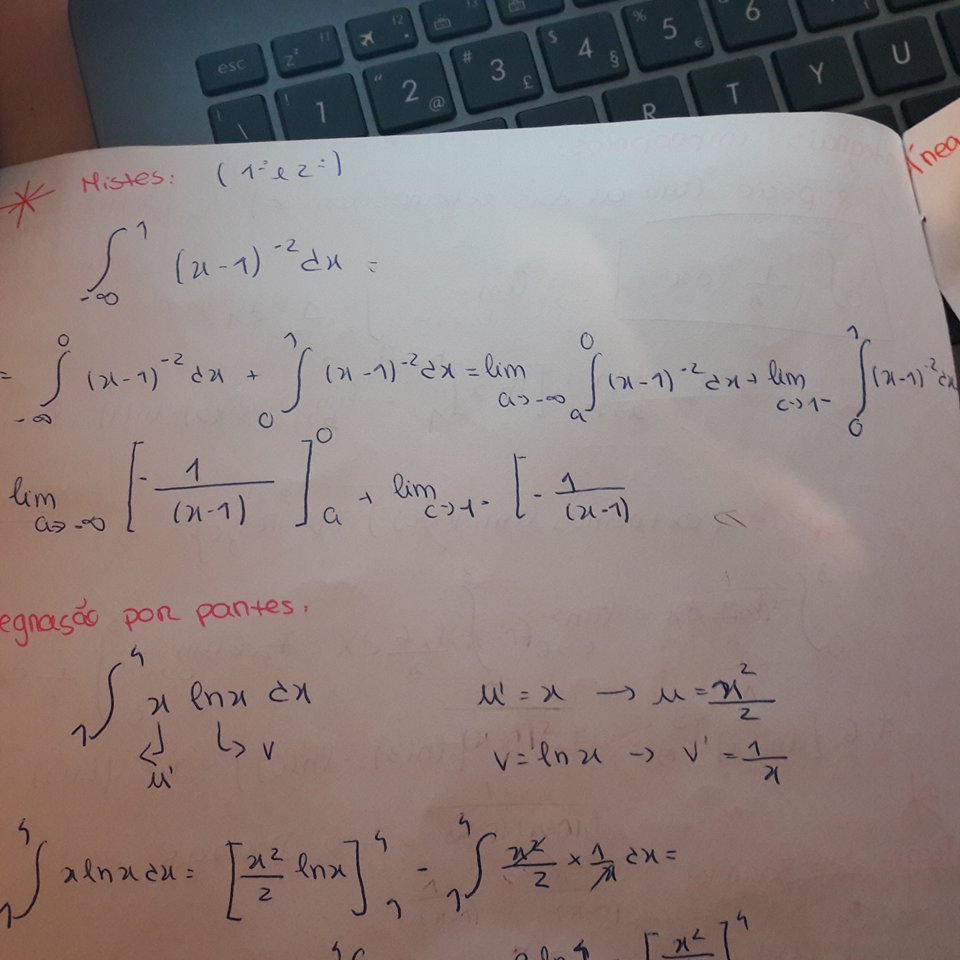 esc z^z 11 12 13
\ ! 1 " 2 @ # 3 £ $ 4 § % 5 € 6
R T Y U
* Mistes: (1ª e 2ª)
ínea
∫_{-∞}^{1} (x-1)^{-2} dx =
= ∫_{-∞}^{0} (x-1)^{-2} dx + ∫_{0}^{1} (x-1)^{-2} dx = lim_{a→-∞} ∫_{a}^{0} (x-1)^{-2} dx + lim_{c→1-} ∫_{0}^{1} (x-1)^{-2} dx
lim_{a→-∞} [- 1/(x-1)]_{a}^{0} + lim_{c→1-} [- 1/(x-1)
egração por partes.
∫_{1}^{4} x ln x dx u' = x → u = x^2/2
u' v v = ln x → v' = 1/x
∫_{1}^{4} x ln x dx = [x^2/2 ln x]_{1}^{4} - ∫_{1}^{4} x^2/2 × 1/x dx =
[x^2